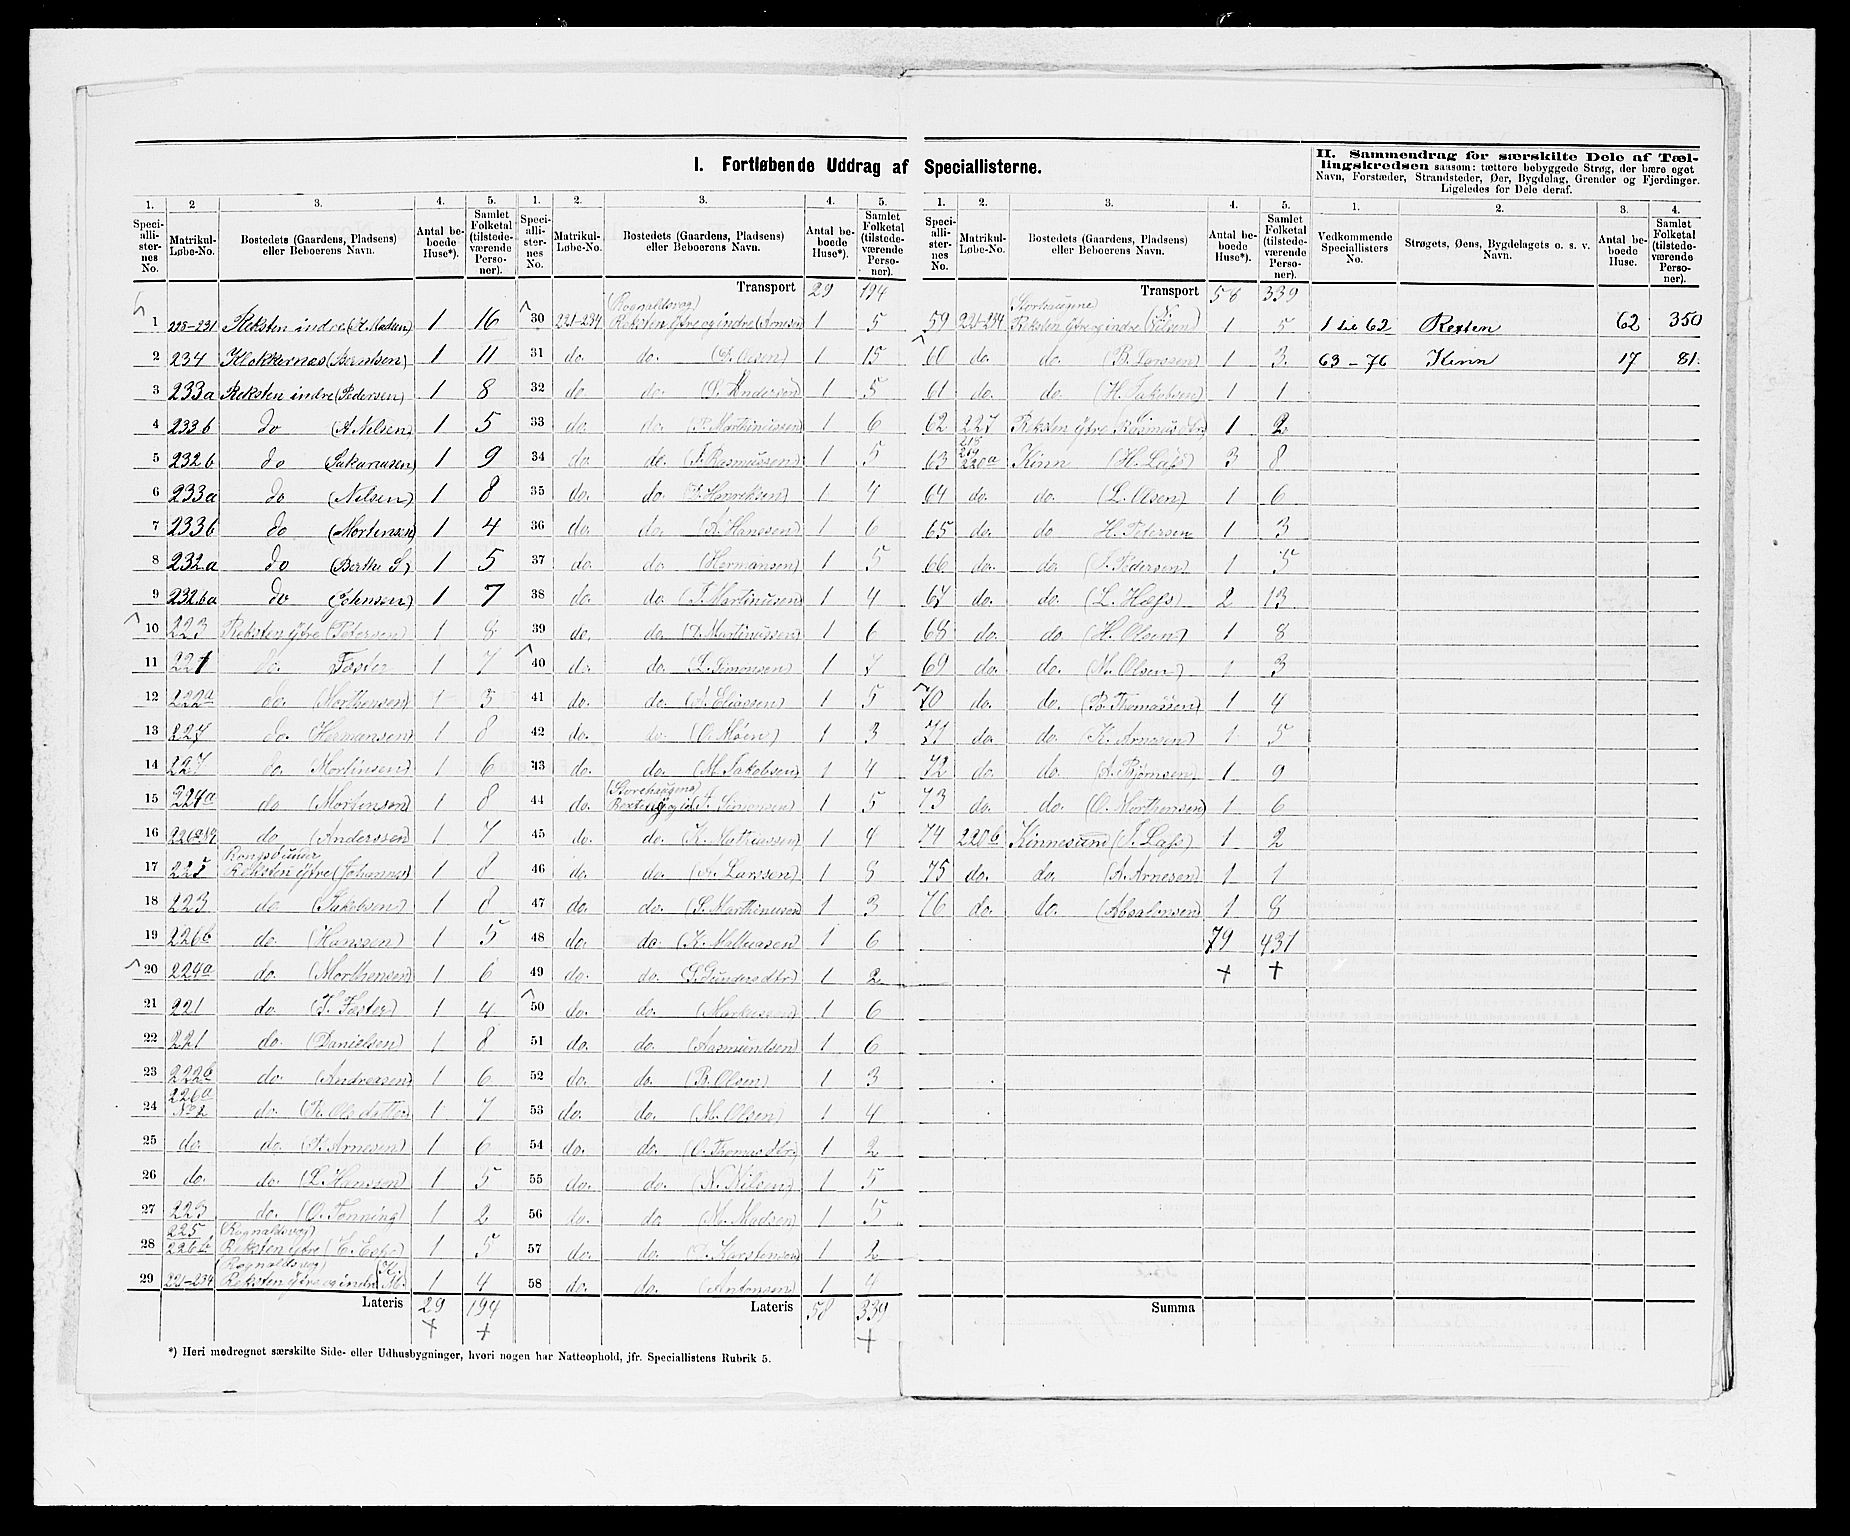 I. Fortløbende Uddrag af Speciallisterne.
II. Sammendrag for særskilte Dele af Tællingskredsen saasom: tættere bebyggede Strøg, der bære eget
Navn, Forstæder, Strandsteder, Øer, Bygdelag, Grender og Fjerdinger.
Ligeledes for Dele deraf.
1. 2 3. 4. 5.
Speciallisternes No. Matrikul-Løbe-No. Bostedets (Gaardens, Pladsens) eller Beboerens Navn. Antal beboede Huse*). Samlet Folketal (tilstedeværende Personer).
1 228-231 Reksten indre (A. Madsen) 1 16
2 234 Klokkernæs (Berntsen) 1 11
3 233a Reksten indre (Pedersen) 1 8
4 233b do (A Nilsen) 1 5
5 232b do (Sakariasen) 1 9
6 233a do (Nilsen) 1 8
7 233b do (Mortensen) 1 4
8 232a do (Berthe S) 1 5
9 232ba do (Johnsen) 1 7
10 223 Reksten Ytre (Petersen) 1 8
11 221 do. Faster 1 7
12 222a do. (Morthensen) 1 3
13 227 do. (Hermansen) 1 8
14 227 do. (Mortinsen) 1 6
15 224a do (Mortensen) 1 8
16 do (Anderssen) 1 7
17 225 Reksten ytre (Johannes) 1 8
18 223 do (Jakobsen) 1 8
19 226b do. (Hanssen) 1 5
20 224a do. (Morthensen) 1 6
21 221 do. (T. Faster) 1 4
22 221 do. (Danielsen) 1 8
23 222b do. (Andreasen) 1 6
24 226a No 2 do. (K. Olsdatter) 1 7
25 do. do. (P. Arnesen) 1 6
26 do. do. (L. Hanssen) 1 5
27 223 do. (O. Tenning) 1 2
28 225 226b (Rognaldsvog) Reksten Ytre (E. Esp.) 1 5
29 221-234 (Rognaldsvog) Reksten Ytre og indre 1 4
Lateris 29 194
1. 2. 3. 4. 5.
Speciallisternes No. Matrikul-Løbe-No. Bostedets (Gaardens, Pladsens) eller Beboerens Navn. Antal beboede Huse*). Samlet Folketal (tilstedeværende Personer).
Transport 29 194
30 221-234 (Rognaldsvog) Reksten Ytre og indre (Arnesen 1 5
31 do. do. (D. Olsen) 1 15
32 do do. (S. Andersen) 1 5
33 do. do. (R. Marthinussen) 1 6
34 do. do. (J. Rasmussen) 1 5
35 do. do. (D. Henriksen) 1 4
36 do. do. (A. Hanssen) 1 6
37 do. do. (Hermansen) 1 5
38 do. do. (J. Martinusen) 1 4
39 do. do. (D. Martinussen) 1 6
40 do. do. (L. Simonsen) 1 7
41 do. do. (A. Eliassen) 1 5
42 do. do. (O. Moen) 1 3
43 do. do. (M. Jakobsen) 1 4
44 do. (Storehaugene) (J. Simonsen) 1 5
45 do. do. (K. Mathiassen) 1 4
46 do. do. (A. Larssen) 1 8
47 do. do. (S. Marthinusen) 1 3
48 do. do. (K. Mathiasen) 1 6
49 do. do. (S. Gundersdtr.) 1 2
50 do. do. (Markussen) 1 6
51 do. do. (Aasmundsen) 1 6
52 do. do. (B. Olsen) 1 3
53 do. do. (M. Olsen) 1 4
54 do. do. (O. Thomasdtr.) 1 2
55 do. do. (N. Nilsen) 1 5
56 do. do (M. Madsen) 1 5
57 do. do. (D. Karstensen) 1 2
58 do. do. (Antonsen) 1 4
Lateris 58 339
*) Heri medregnet særskilte Side- eller Udhusbygninger, hvori nogen har Natteophold, jfr. Speciallistens Rubrik 5.
1. 2. 3. 4. 5.
Speciallisternes No. Matrikul-Løbe-No. Bostedets (Gaardens, Pladsens) eller Beboerens Navn. Antal beboede Huse*). Samlet Folketal (tilstedeværende Personer).
Transport 58 339
59 221-234 Storhaugene Reksten Ytre og indre (Nilsen) 1 5
60 do. do. (B. Larssen) 1 3.
61 do. do. (H. Jakobsen) 1 1
62 227 Reksten Ytre (Rasmusdtr) 1 2
63 218 219 220a Kinn (H. Lass) 3 8
64 do. do. (L. Olsen) 1 6
65 do. do H. Petersen 1 3
66 do. do. (S. Pedersen) 1 5
67 do. do. (L. Hass) 2 13
68 do. do (H. Olsen) 1 8
69 do. do. (M. Olsen) 1 3
70 do. do. (B. Thomassen) 1 4
71 do. do. (K. Arnesen) 1 5
72 do. do. (A. Bjørnsen) 1 9
73 do. do. (O. Morthensen) 1 6
74 220b Kinnesund (J. Lass) 1 2
75 do. do. (A. Arnesen) 1 1
76 do. do. (Absalonsen) 1 8
79 431
Summa
1. 2. 3. 4.
Vedkommende Speciallisters No. Strøgets, Øens, Bygdelagets o. s. v. Navn. Antal beboede Huse. Samlet Folketal (tilstedeværende Personer).
1 til 62 Rexten 62 350
63-76 Kinn 17 81.